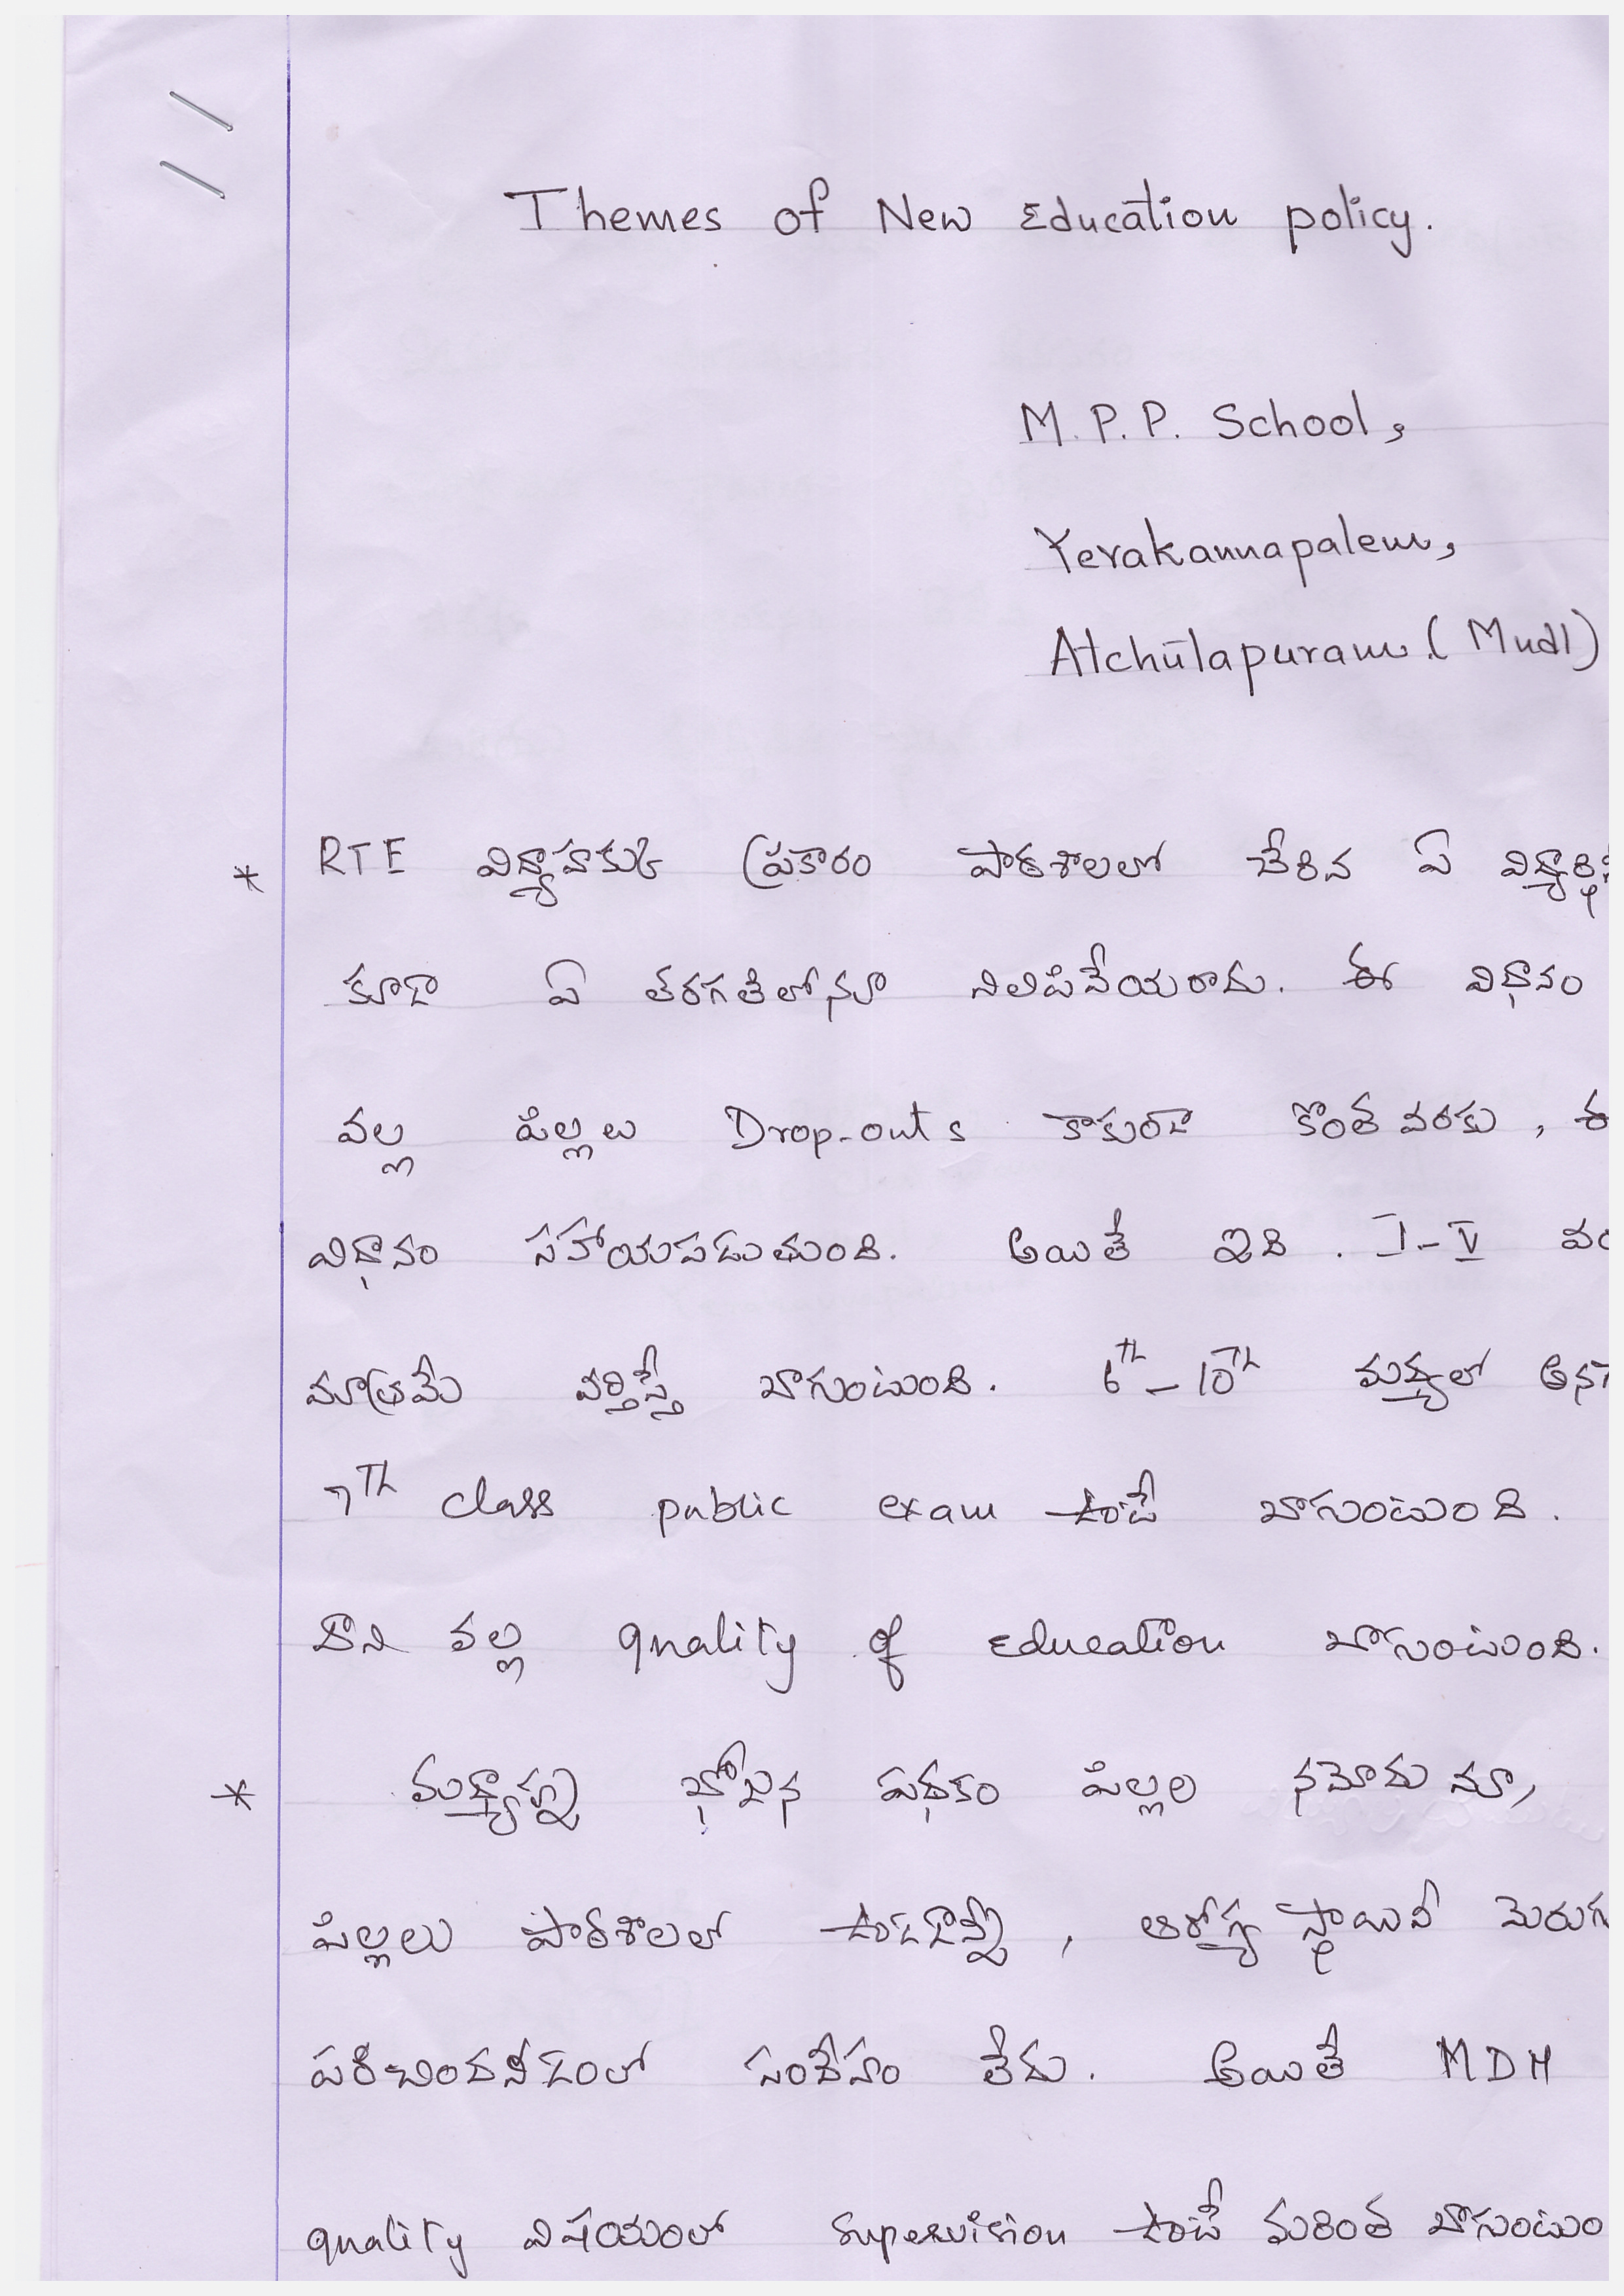 Themes of New Education policy.
M.P.P. School,
Yerakannapalem,
Atchutapuram (Mndl)
* RTE విద్యాహక్కు ప్రకారం పాఠశాలలో చేరిన ఏ
కూడా ఏ తరగతిలోనూ నిలిపివేయరాదు. ఈ విధానం
వల్ల పిల్లలు Drop-outs కాకుండా కొంత వరకు, ఈ
విధానం సహాయపడుతుంది. అయితే ఇది. I-V
మాత్రమే వర్తిస్తే బాగుంటుంది. 6th-10th మధ్యలో
7th class public exam ఉంటే బాగుంటుంది.
దాని వల్ల quality of Education బాగుంటుంది.
* మధ్యాహ్న భోజన పథకం పిల్లల నమోదునూ,
పిల్లలు పాఠశాలలో ఉండడాన్ని, ఆరోగ్య స్థాయినీ
పరిచిందనీడంలో సందేహం లేదు. అయితే MDM
quality విషయంలో supervision ఉంటే మరింత